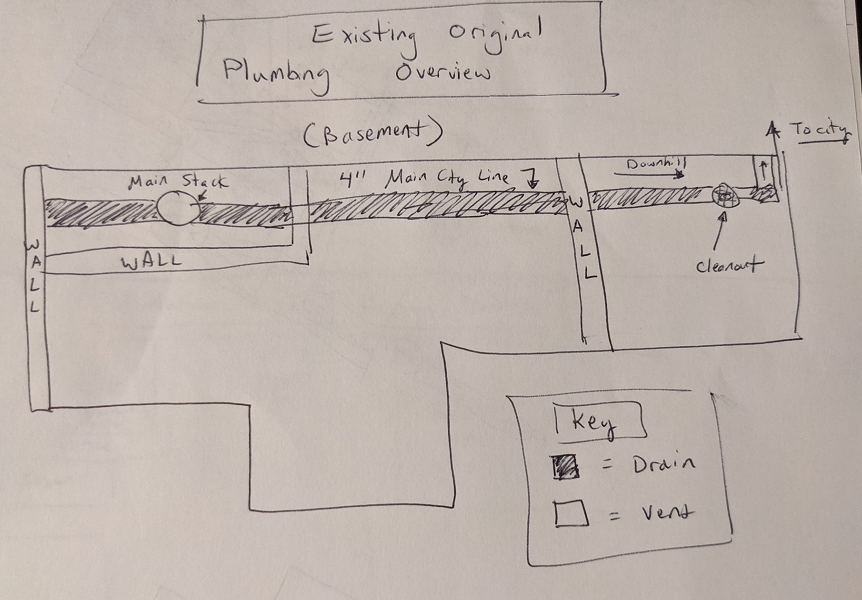 Existing Original
Plumbng Overview
(Basement)
To city
Main Stack
4" Main City Line
Downhill
WALL
WALL
WALL
Cleanout
Key
= Drain
= Vent